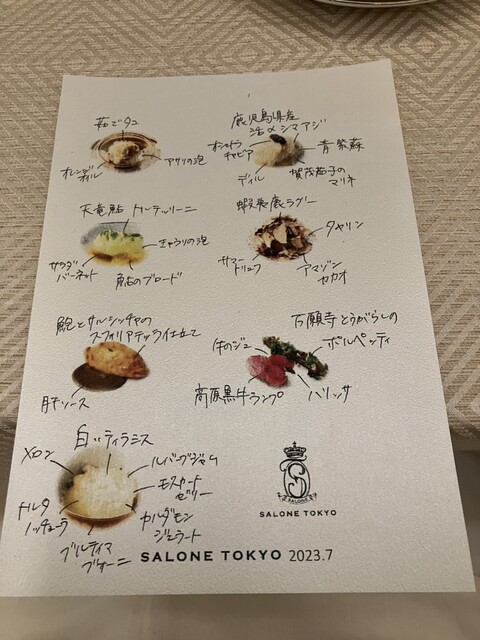 茹でタコ
オレンジ
オイル
アサリの泡
鹿児島県産
活〆シマアジ
オシェトラ
キャビア
青紫蘇
ディル
賀茂茄子の
マリネ
天竜鮎 トルテッリーニ
きゅうりの泡
サラダ
バーネット
鮎のブロード
蝦夷鹿ラグー
タヤリン
サマー
トリュフ
アマゾン
カカオ
鮑とサルシッチャの
スフォリアテッラ仕立て
肝ソース
万願寺とうがらしの
ポルペッティ
牛のジュ
高原黒牛ランプ
ハリッサ
白いティラミス
メロン
ルバーブジャム
モスカート
ゼリー
トルタ
ノッチョーラ
カルダモン
ジェラート
SALONE
SALONE TOKYO
SALONE TOKYO 2023.7